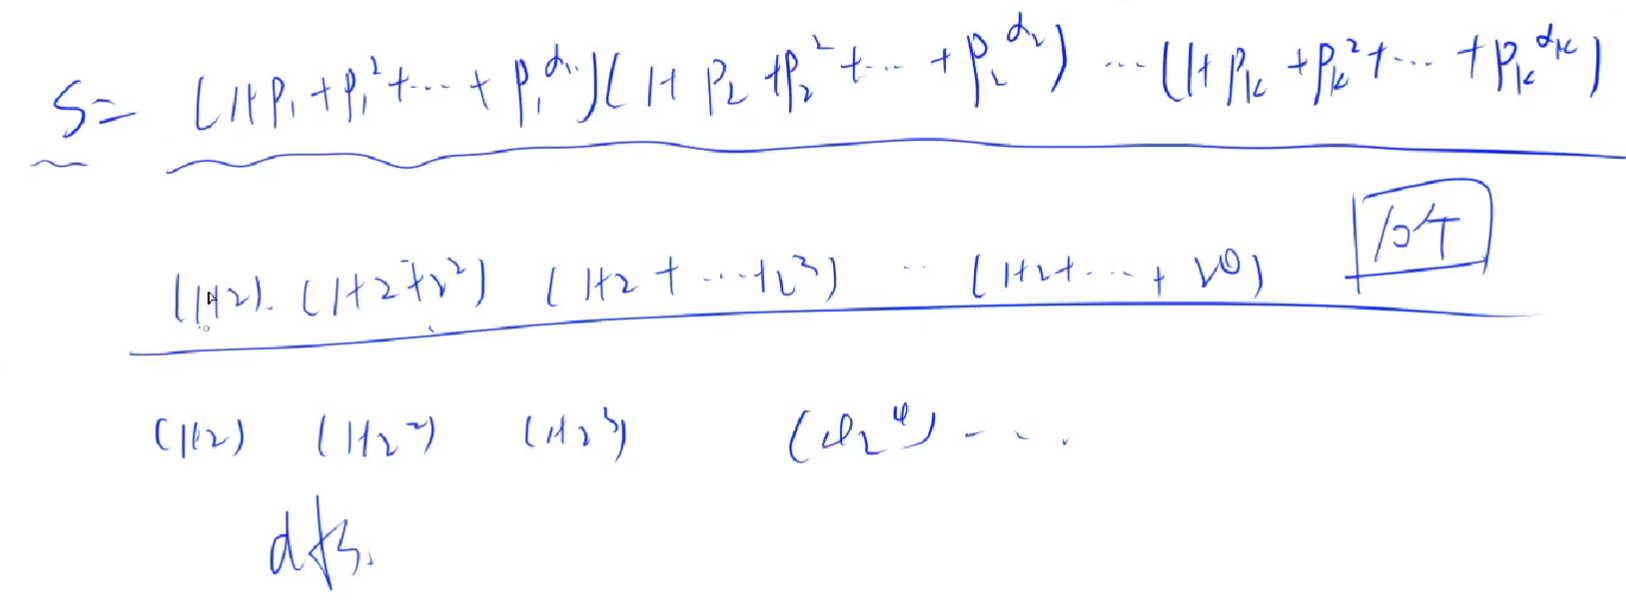 S = (1+p₁+p₁²+⋯+p₁^α₁)(1+p₂+p₂²+⋯+p₂^α₂) ⋯ (1+pₖ+pₖ²+⋯+pₖ^αₖ)
10个
(1+2)·(1+2+2²) (1+2+⋯+2³) ⋯ (1+2+⋯+2¹⁰)
(1+2) (1+2²) (1+2³) (1+2⁴) ⋯
dfs.